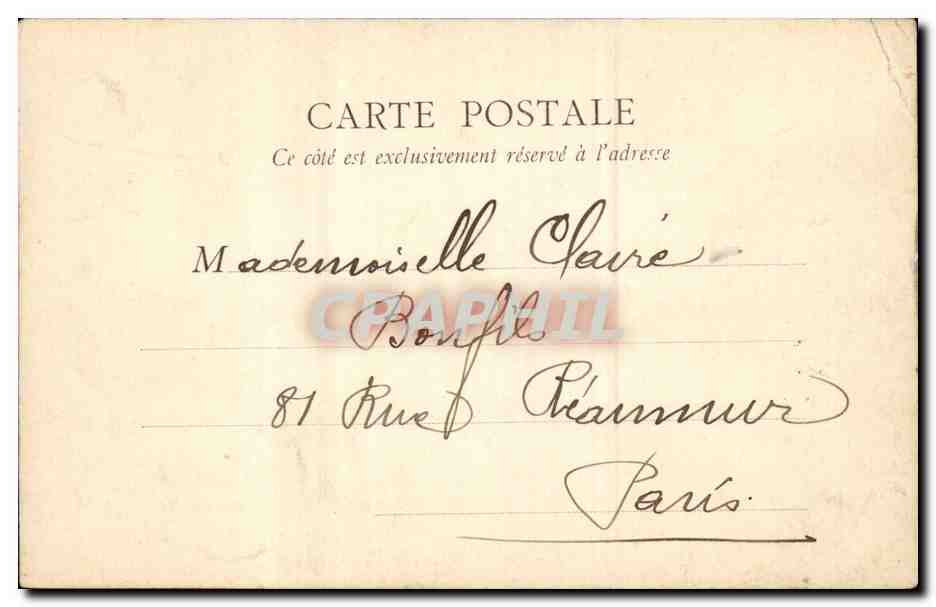 CARTE POSTALE
Ce côté est exclusivement réservé à l'adresse
Mademoiselle Claire
CPAPHIL
Bonfils
81 Rue Réaumur
Paris